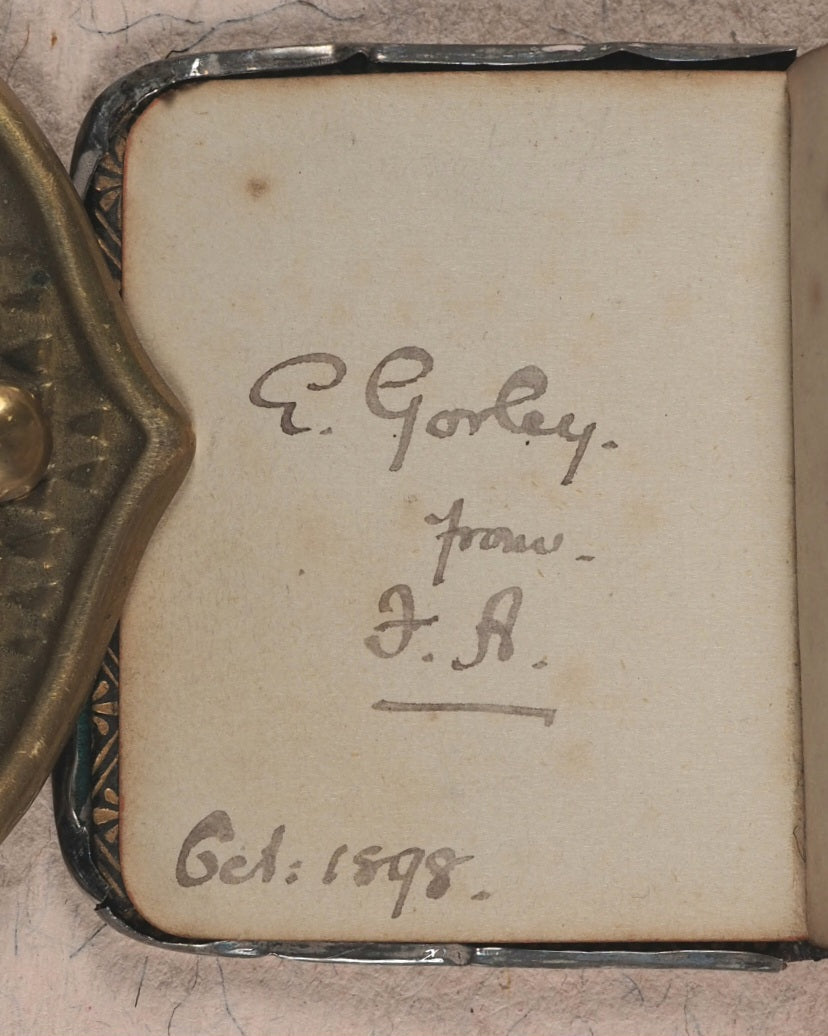 E. Gorley.
from -
F. A.
Oct: 1898.